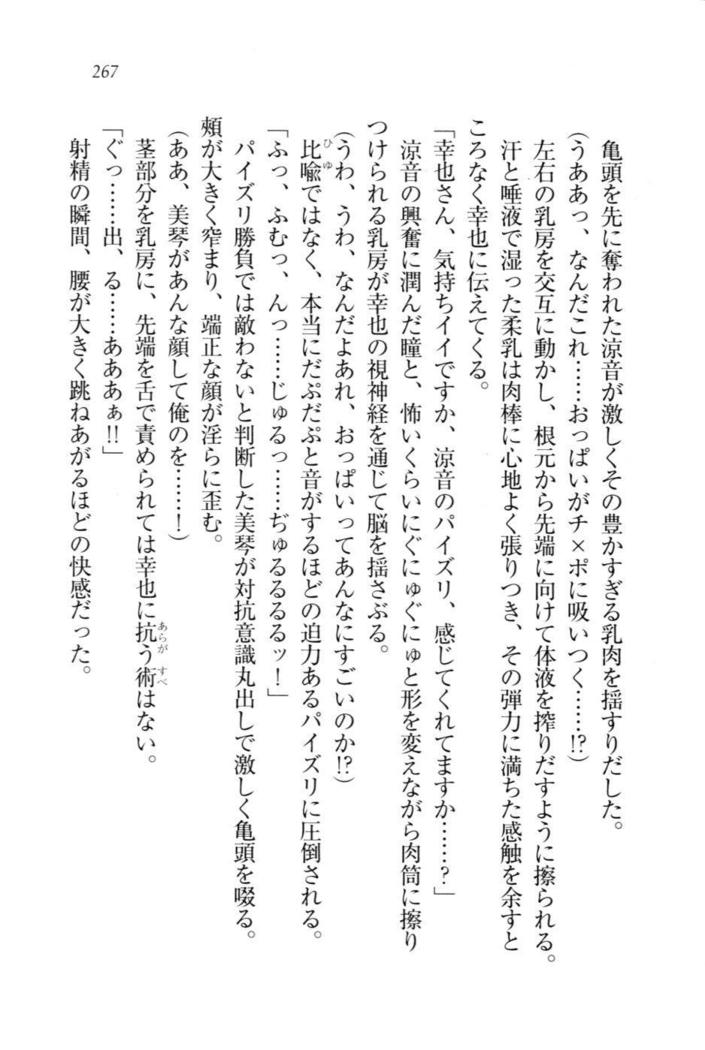 267
亀頭を先に奪われた涼音が激しくその豊かすぎる乳肉を揺すりだした。
(うああっ、なんだこれ……おっぱいがチ×ポに吸いつく……!?)
左右の乳房を交互に動かし、根元から先端に向けて体液を搾りだすように擦られる。
汗と唾液で湿った柔乳は肉棒に心地よく張りつき、その弾力に満ちた感触を余すと
ころなく幸也に伝えてくる。
「幸也さん、気持ちイイですか、涼音のパイズリ、感じてくれてますか……?」
涼音の興奮に潤んだ瞳と、怖いくらいにぐにゅぐにゅと形を変えながら肉筒に擦り
つけられる乳房が幸也の視神経を通じて脳を揺さぶる。
(うわ、うわ、なんだよあれ、おっぱいってあんなにすごいのか!?)
比喩ではなく、本当にだぷだぷと音がするほどの迫力あるパイズリに圧倒される。
「ふっ、ふむっ、んっ……じゅるっ……ぢゅるるるるッ!」
パイズリ勝負では敵わないと判断した美琴が対抗意識丸出しで激しく亀頭を啜る。
頬が大きく窄まり、端正な顔が淫らに歪む。
(ああ、美琴があんな顔して俺のを……!)
茎部分を乳房に、先端を舌で責められては幸也に抗う術はない。
「ぐっ……出、る……あああぁ!!」
射精の瞬間、腰が大きく跳ねあがるほどの快感だった。